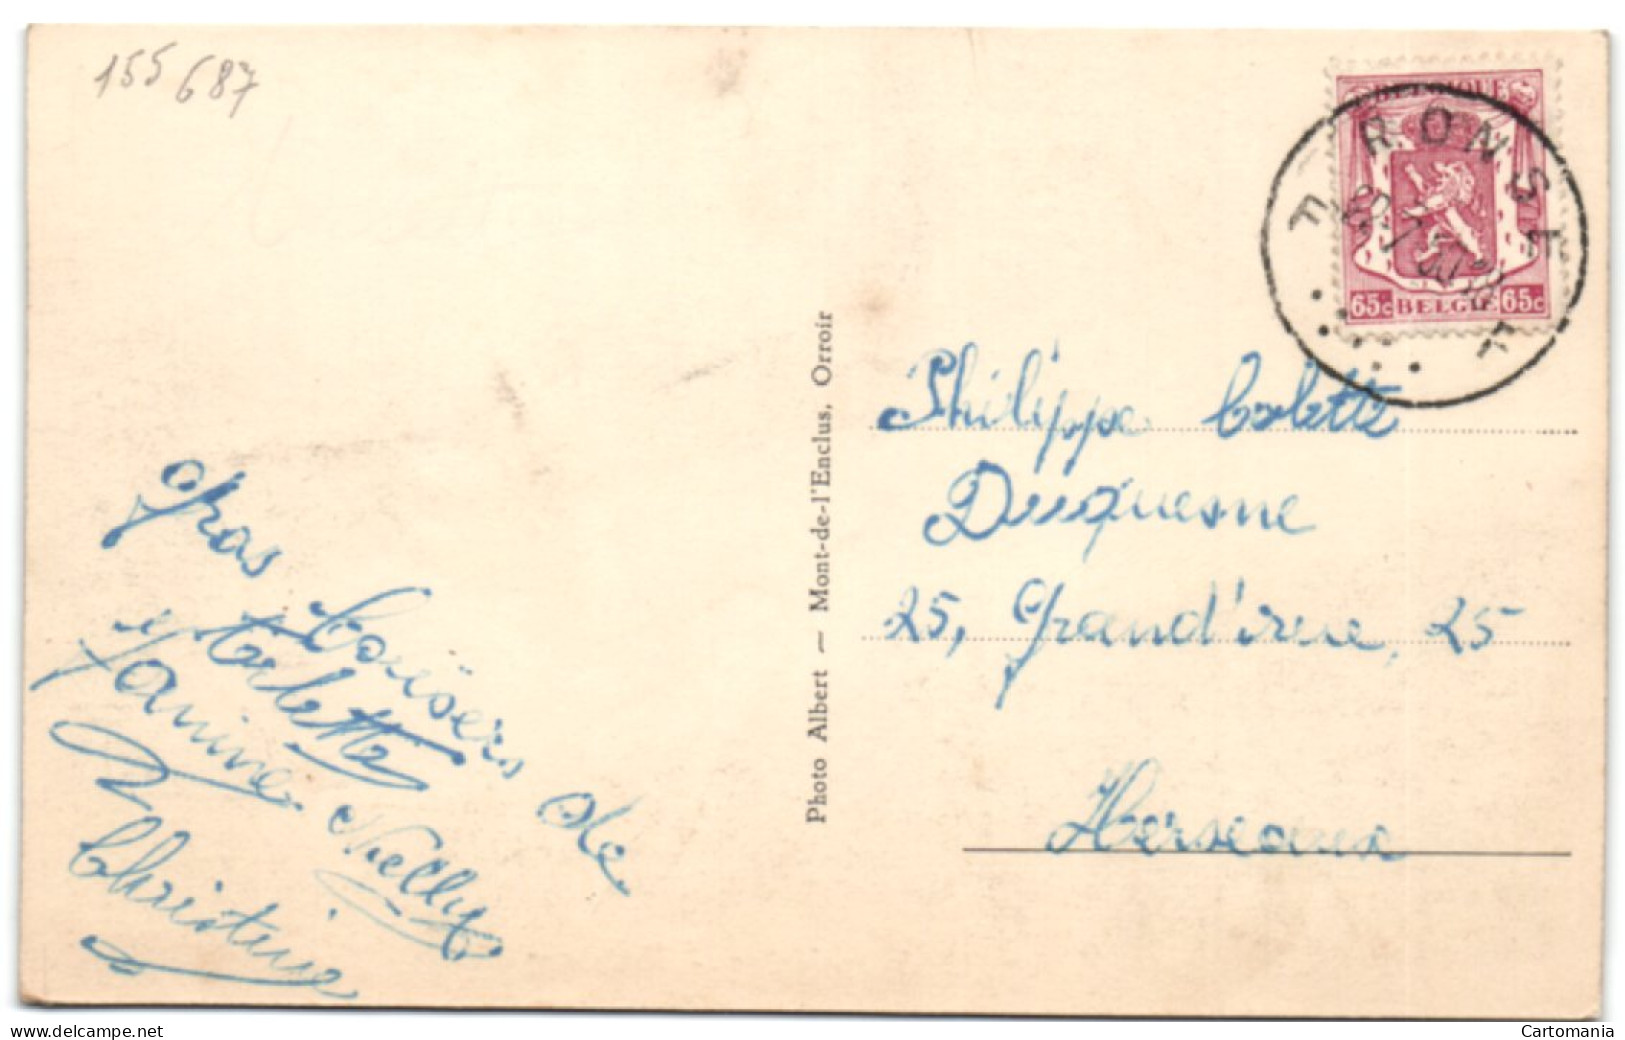 155687
BELGIQUE
65c BELGIË 65c
F RONSE F
Philippe Colette
Duquesne
25, Grand'rue, 25
Herseaux
Photo Albert — Mont-de-l'Enclus, Orroir
Gros baisers de
Arlette
Janine Nelly
Christine
delcampe.net
Cartomania